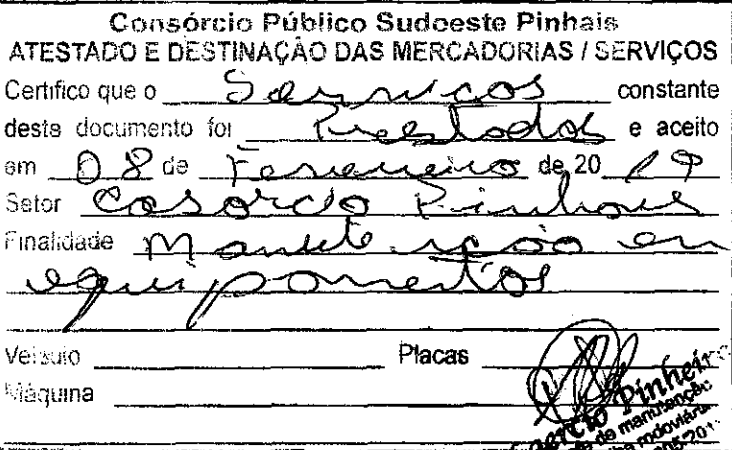 Consórcio Público Sudoeste Pinhais
ATESTADO E DESTINAÇÃO DAS MERCADORIAS / SERVIÇOS
Certifico que o Serviços constante
deste documento foi Prestados e aceito
em 08 de Fevereiro de 20 19
Setor Casorcio Pinhais
Finalidade Manutenção em
equipamentos
Veículo Placas
Máquina
Pinheiro
de manutenção
rodoviária